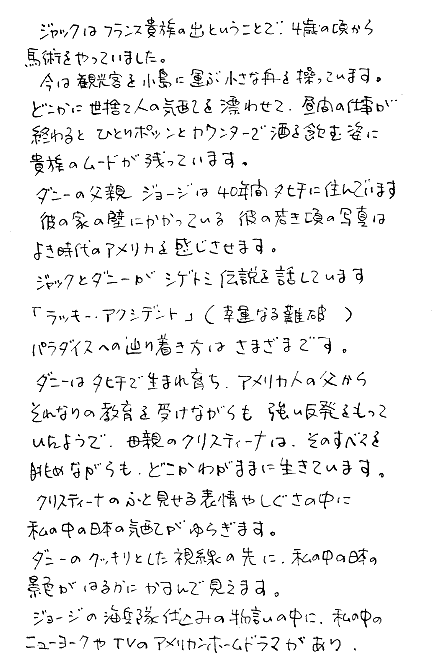 ジャックはフランス貴族の出ということで、4歳の頃から
馬術をやっていました。
今は観光客を小島に運ぶ小さな舟を操っています。
どこかに世捨て人の気配を漂わせて、昼間の仕事が
終わると ひとりポツンとカウンターで酒を飲む姿に
貴族のムードが残っています。
ダニーの父親 ジョージは40年間タヒチに住んでいます
彼の家の壁にかかっている 彼の若き頃の写真は
よき時代のアメリカを感じさせます。
ジャックとダニーが シゲトミ伝説を話しています
「ラッキー・アクシデント」(幸運なる難破 )
パラダイスへの辿り着き方は さまざまです。
ダニーはタヒチで生まれ育ち、アメリカ人の父から
それなりの教育を受けながらも 強い反発をもって
いたようで、母親のクリスティーナは、そのすべてを
眺めながらも、どこかわがままに生きています。
クリスティーナのふと見せる表情やしぐさの中に
私の中の日本の気配がゆらぎます。
ダニーのクッキリとした視線の先に、私の中の日本の
景色がはるかにかすんで見えます。
ジョージの海兵隊仕込みの物言いの中に、私の中の
ニューヨークやTVのアメリカンホームドラマがあり、